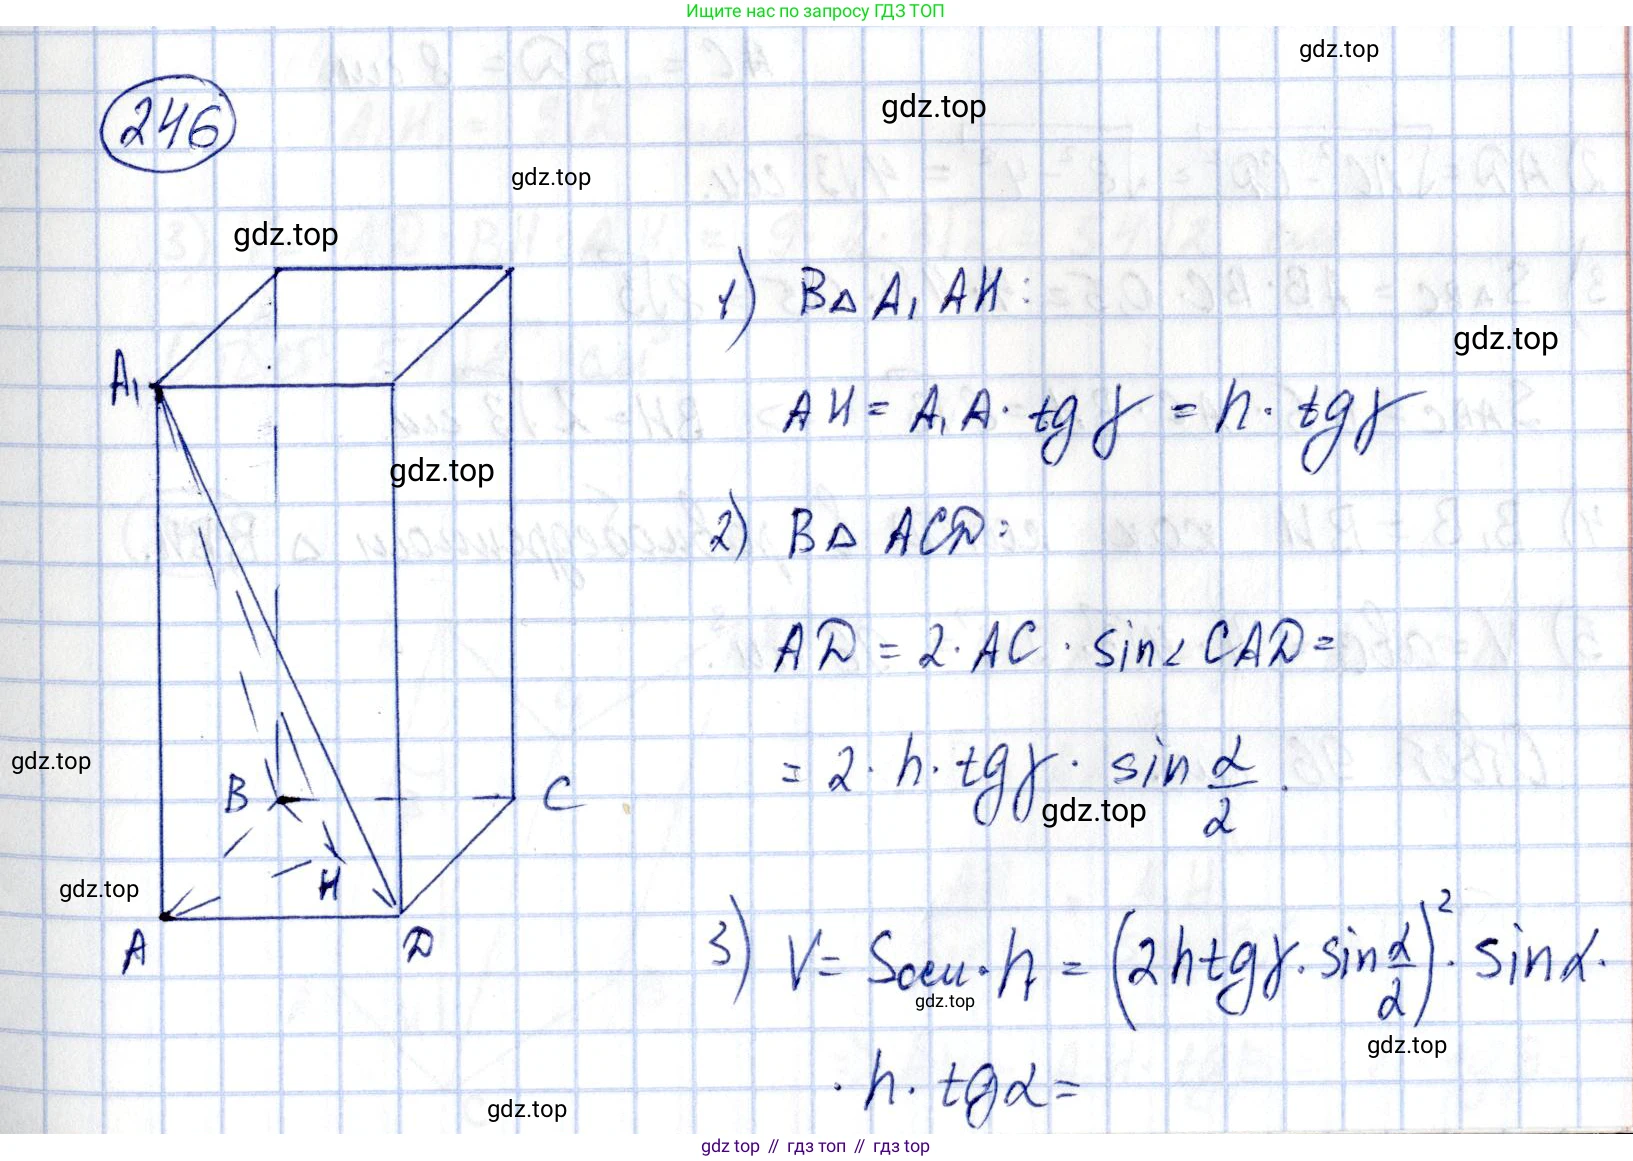 Ищите нас по запросу ГДЗ ТОП
gdz.top
gdz.top
246
gdz.top
gdz.top
1) В△ A₁AH:
gdz.top
A₁
AH = A₁A · tg γ = h · tg γ
gdz.top
2) В△ ACD:
AD = 2 · AC · sin∠CAD =
= 2 · h · tg γ · sin α/2.
gdz.top
gdz.top
B
C
H
gdz.top
A
D
3) V = Sосн · h = (2h tg γ · sin α/2)² · sin α ·
gdz.top
gdz.top
· h · tg α =
gdz.top
gdz top // гдз топ // гдз top